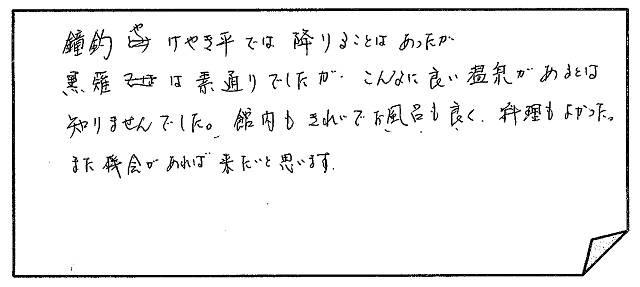 鐘釣や けやき平では降りることはあったが
黒薙では素通りでしたが こんなに良い温泉があるとは
知りませんでした。館内もきれいでお風呂も良く、料理もよかった。
また機会があれば来たいと思います。